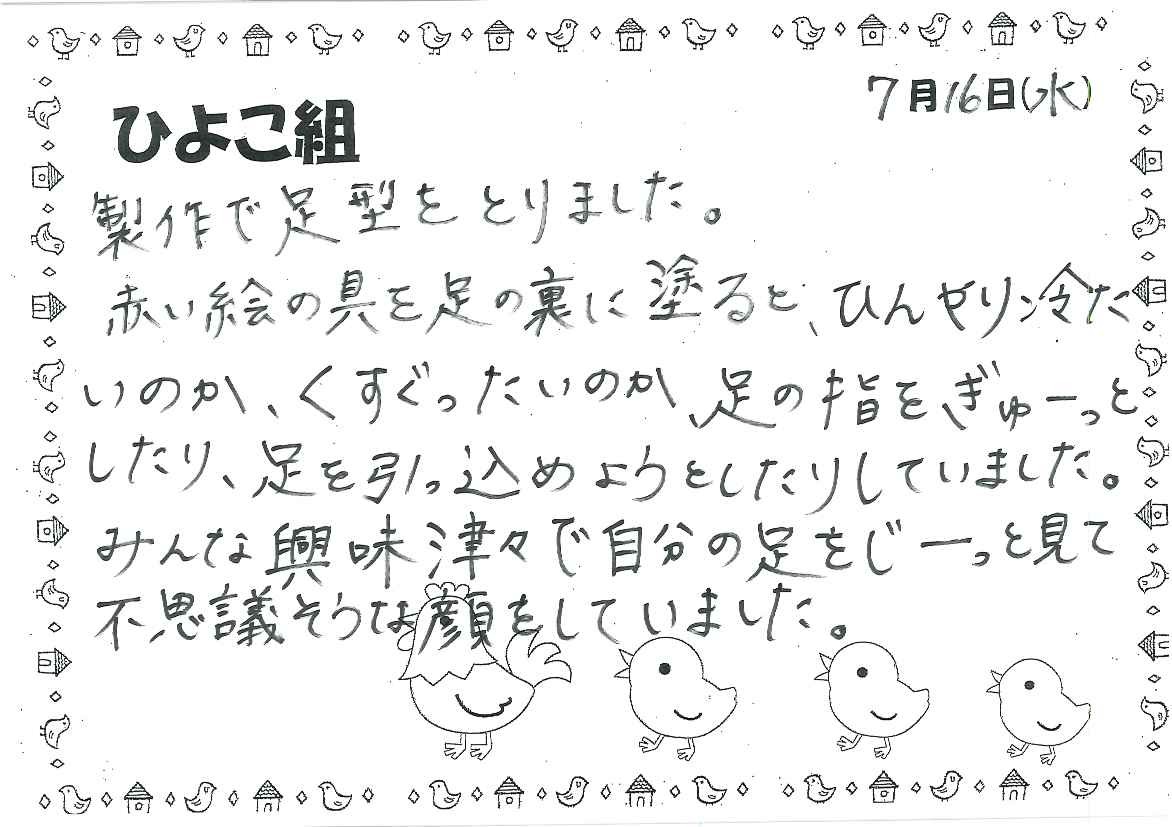 7月16日(水)
ひよこ組
製作で足型をとりました。
赤い絵の具を足の裏に塗ると、ひんやり冷た
いのか、くすぐったいのか、足の指をぎゅーっと
したり、足を引っ込めようとしたりしていました。
みんな興味津々で自分の足をじーっと見て
不思議そうな顔をしていました。